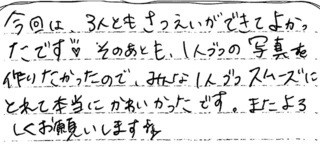 今回は、3人ともさつえいができてよかっ
たです♡ そのあとも、1人づつの写真を
作りたかったので、みんな1人づつスムーズに
とれて本当にかわいかったです。またよろ
しくお願いします